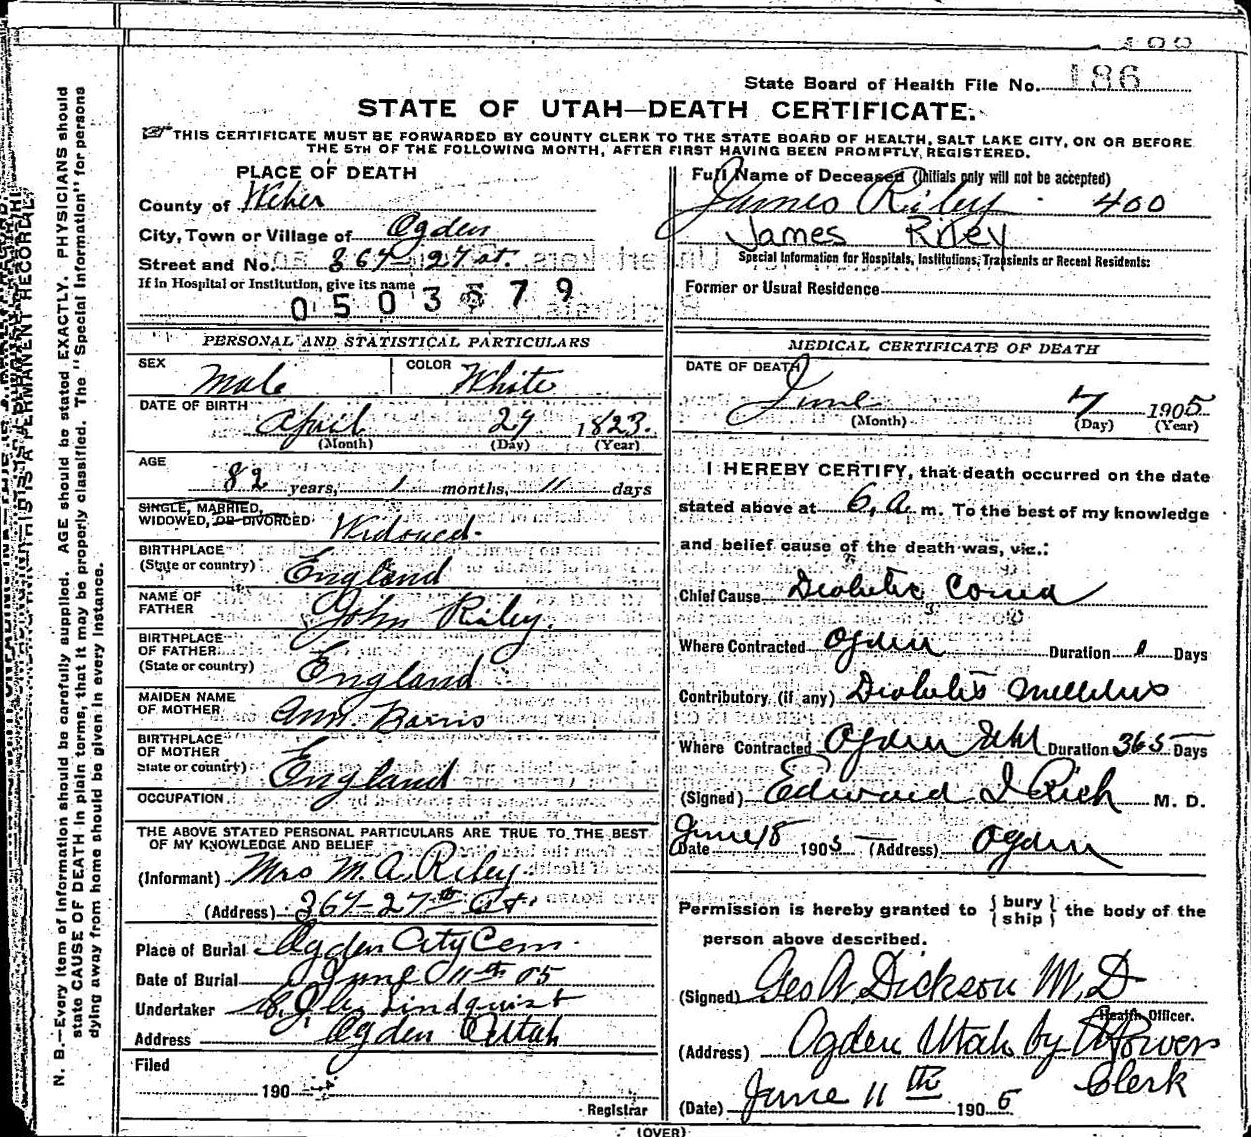 State Board of Health File No. 186
STATE OF UTAH—DEATH CERTIFICATE.
THIS CERTIFICATE MUST BE FORWARDED BY COUNTY CLERK TO THE STATE BOARD OF HEALTH, SALT LAKE CITY, ON OR BEFORE
THE 5TH OF THE FOLLOWING MONTH, AFTER FIRST HAVING BEEN PROMPTLY REGISTERED.
PLACE OF DEATH
County of Weber
City, Town or Village of Ogden
Street and No. 367-27 st.
If in Hospital or Institution, give its name
0503679
Full Name of Deceased (Initials only will not be accepted)
James Riley 400
James Riley
Special Information for Hospitals, Institutions, Transients or Recent Residents:
Former or Usual Residence
PERSONAL AND STATISTICAL PARTICULARS
SEX Male COLOR White
DATE OF BIRTH
April 27 1823.
(Month) (Day) (Year)
AGE
82 years, 1 months, 11 days
SINGLE, MARRIED,
WIDOWED, OR DIVORCED Widowed.
BIRTHPLACE
(State or country) England
NAME OF
FATHER John Riley.
BIRTHPLACE
OF FATHER
(State or country) England
MAIDEN NAME
OF MOTHER Ann
BIRTHPLACE
OF MOTHER
State or country) England
OCCUPATION
THE ABOVE STATED PERSONAL PARTICULARS ARE TRUE TO THE BEST
OF MY KNOWLEDGE AND BELIEF
(Informant) Mrs M. A. Riley
(Address) 367-27th St.
Place of Burial Ogden City Cem.
Date of Burial June 11th 05
Undertaker Lindquist
Address Ogden Utah
Filed
190
Registrar
MEDICAL CERTIFICATE OF DEATH
DATE OF DEATH
June 7 1905
(Month) (Day) (Year)
I HEREBY CERTIFY, that death occurred on the date
stated above at 6, a. m. To the best of my knowledge
and belief cause of the death was, viz.:
Chief Cause Diabetic Coma
Where Contracted Ogden Duration 1 Days
Contributory (if any) Diabetis Mellitus
Where Contracted Ogden Utah Duration 365 Days
(Signed) Edward I Rich M. D.
Date June 18 1905 (Address) Ogden
Permission is hereby granted to { bury
ship } the body of the
person above described.
(Signed) Geo A. Dickson M. D
Health Officer.
(Address) Ogden Utah by Powers
Clerk
(Date) June 11th 190
(OVER)
N. B.—Every item of information should be carefully supplied. AGE should be stated EXACTLY. PHYSICIANS should
state CAUSE OF DEATH in plain terms, that it may be properly classified. The "Special Information" for persons
dying away from home should be given in every instance.